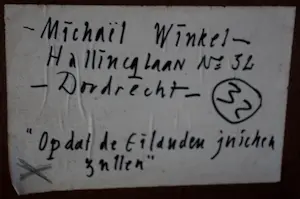 - Michaïl Winkel -
Hallincqlaan No 32
- Dordrecht -
32
"Opdat de Eilanden juichen
zullen"
X